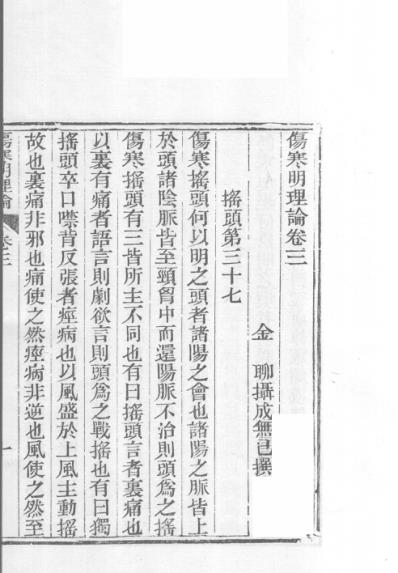 傷寒明理論卷三
金　聊攝成無已撰
搖頭第三十七
傷寒搖頭何以明之頭者諸陽之會也諸陽之脈皆上
於頭諸陰脈皆至頸胷中而還陽脈不治則頭爲之搖
傷寒搖頭有三皆所主不同也有曰搖頭言者裏痛也
以裏有痛者語言則劇欲言則頭爲之戰搖也有曰獨
搖頭卒口噤背反張者痙病也以風盛於上風主動搖
故也裏痛非邪也痛使之然痙病非逆也風使之然至
傷寒明理論　卷三　一